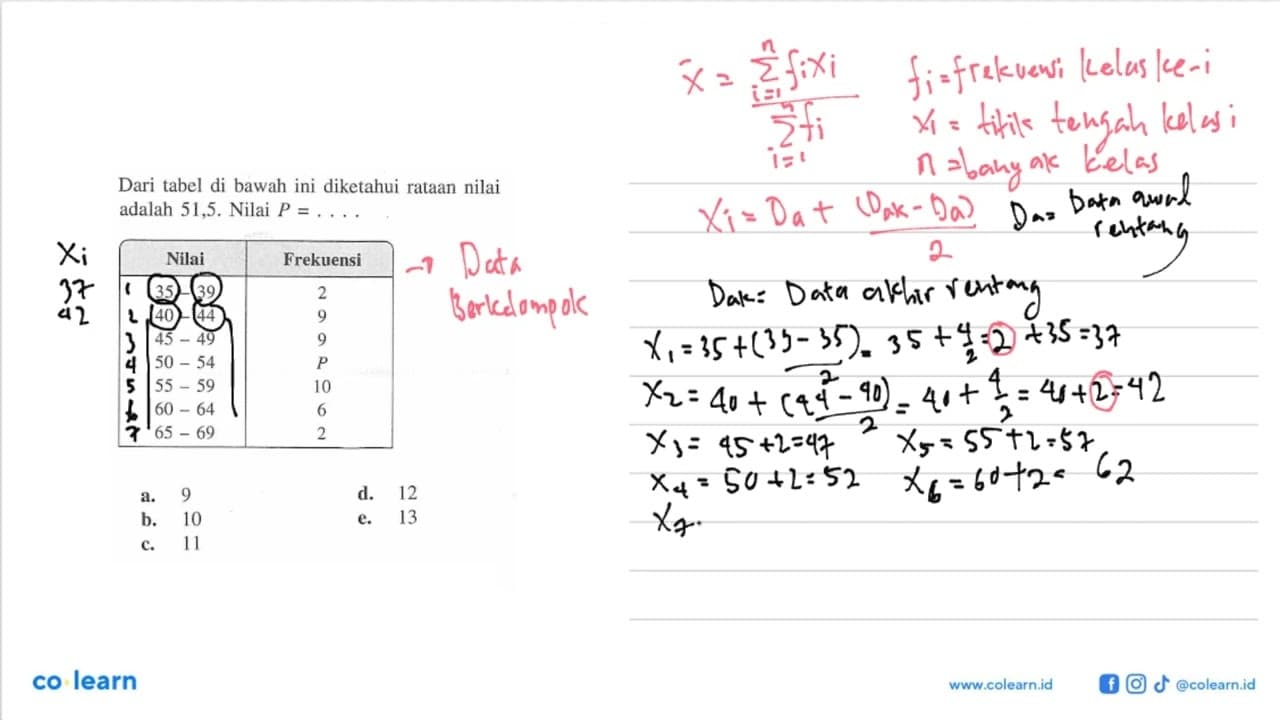 x̄ = Σ fixi / Σ fi
n
i=1
n
i=1
fi = frekuensi kelas ke-i
xi = titik tengah kelas i
n = banyak kelas
Xi = Da + (Dak - Da) / 2
Da = Data awal rentang
Dak = Data akhir rentang
Dari tabel di bawah ini diketahui rataan nilai
adalah 51,5. Nilai P = . . . .
Xi
Nilai Frekuensi
37 1 35 – 39 2
42 2 40 – 44 9
3 45 – 49 9
4 50 – 54 P
5 55 – 59 10
6 60 – 64 6
7 65 – 69 2
→ Data
Berkelompok
a. 9
b. 10
c. 11
d. 12
e. 13
X1 = 35 + (39 - 35) / 2 = 35 + 4/2 = 2 + 35 = 37
X2 = 40 + (44 - 40) / 2 = 40 + 4/2 = 40 + 2 = 42
X3 = 45 + 2 = 47 X5 = 55 + 2 = 57
X4 = 50 + 2 = 52 X6 = 60 + 2 = 62
X7.
co learn
www.colearn.id
@colearn.id